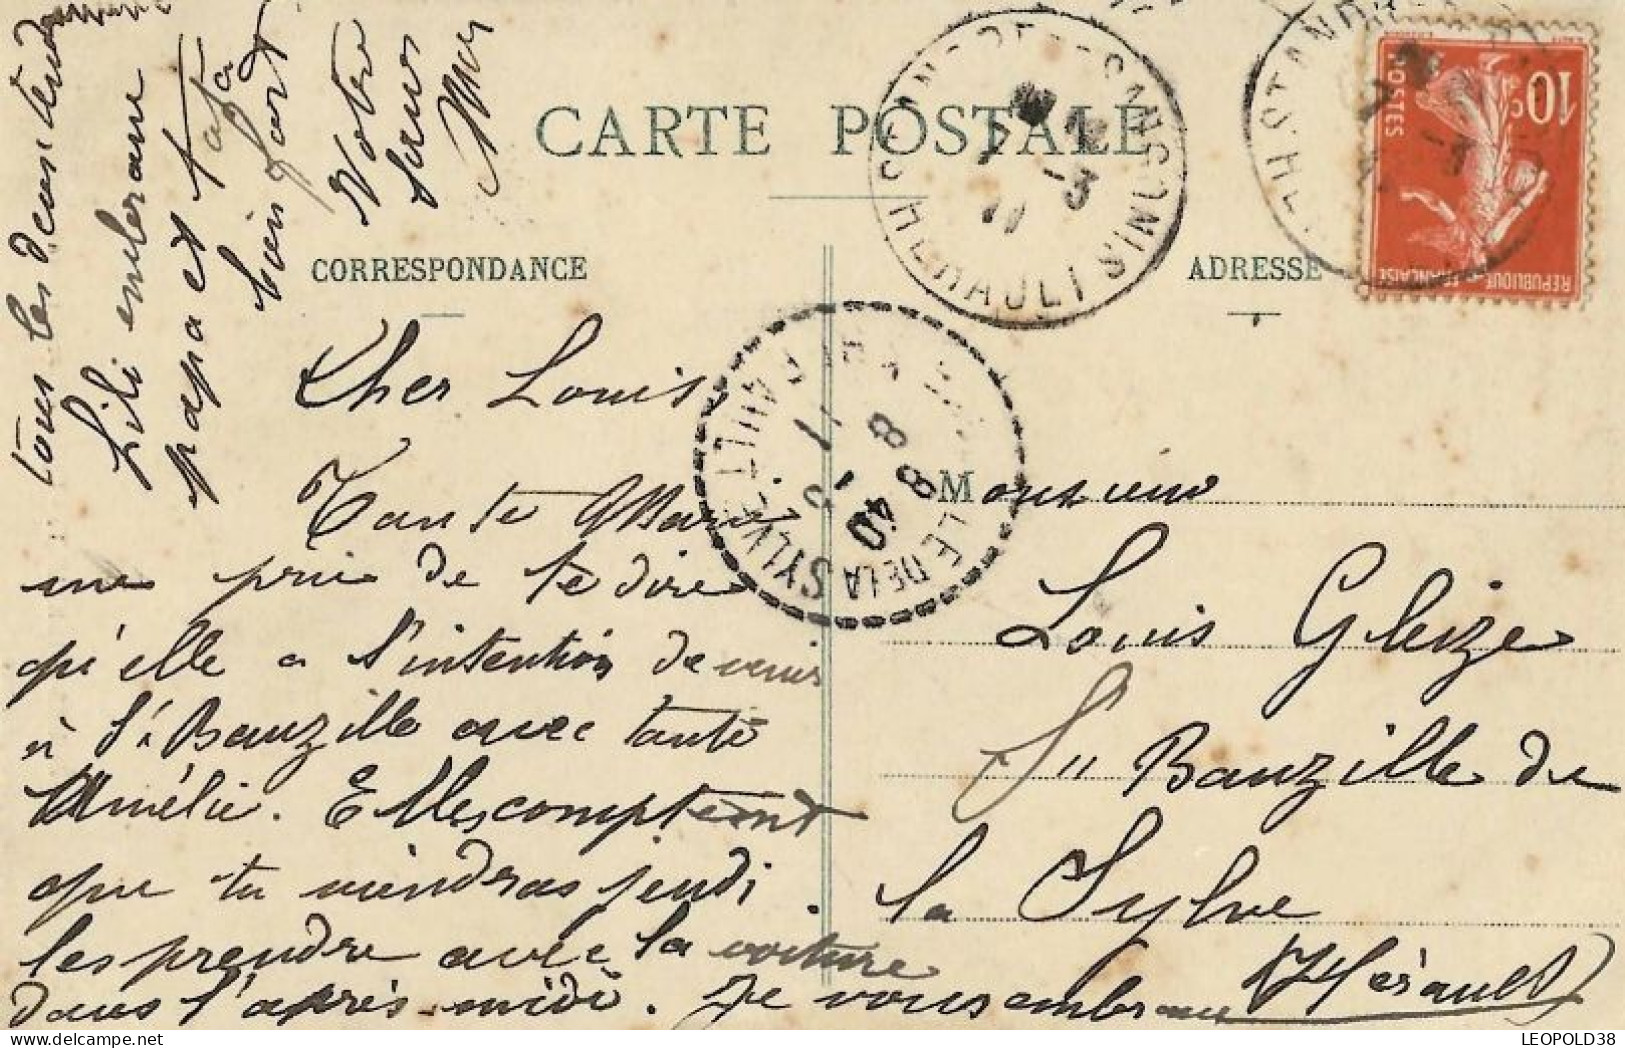 CARTE POSTALE
CORRESPONDANCE
ADRESSE
Cher Louis,
Tante Marie
me prie de te dire
qu'elle a l'intention de venir
à St Bauzille avec tante
Amélie. Elles comptent
que tu viendras jeudi
les prendre avec la voiture
dans l'après-midi. Je vous embrasse
tous les deux tendrement
Lili embrasse
papa et tata
bien fort
Votre
sœur
Monsieur
Louis Gleize
St Bauzille de
la Sylve
(Hérault)
ST ANDRE DE SANGONIS
HERAULT
7 -3
11
ST ANDRE
HERAULT
LE DE LA SYLVE
HERAULT
8 40
8
10c
POSTES
REPUBLIQUE FRANÇAISE
LEOPOLD38